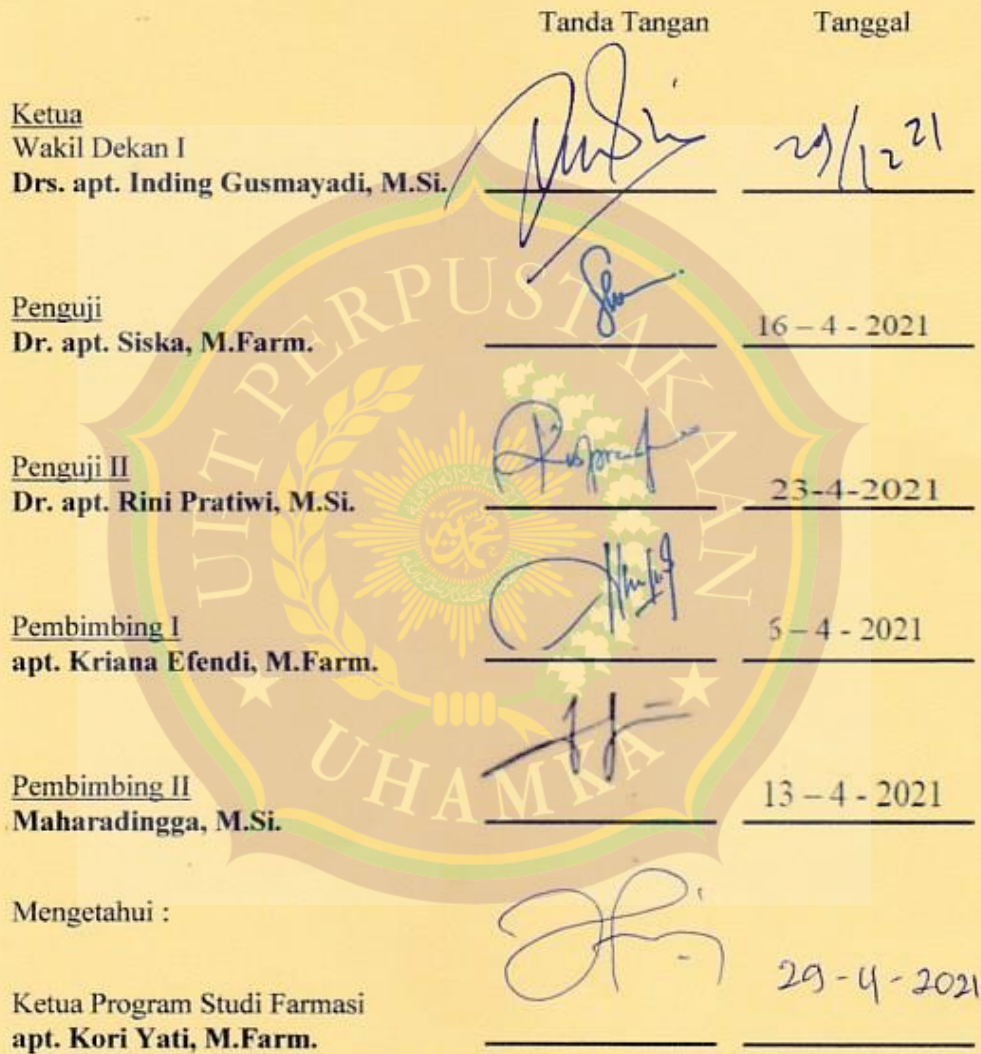 Tanda Tangan Tanggal
Ketua
Wakil Dekan I
Drs. apt. Inding Gusmayadi, M.Si.
29/12 21
Penguji
Dr. apt. Siska, M.Farm.
16 – 4 - 2021
Penguji II
Dr. apt. Rini Pratiwi, M.Si.
23-4-2021
Pembimbing I
apt. Kriana Efendi, M.Farm.
5 – 4 - 2021
Pembimbing II
Maharadingga, M.Si.
13 – 4 - 2021
Mengetahui :
Ketua Program Studi Farmasi
apt. Kori Yati, M.Farm.
29 - 4 - 2021
UPT PERPUSTAKAAN
UHAMKA